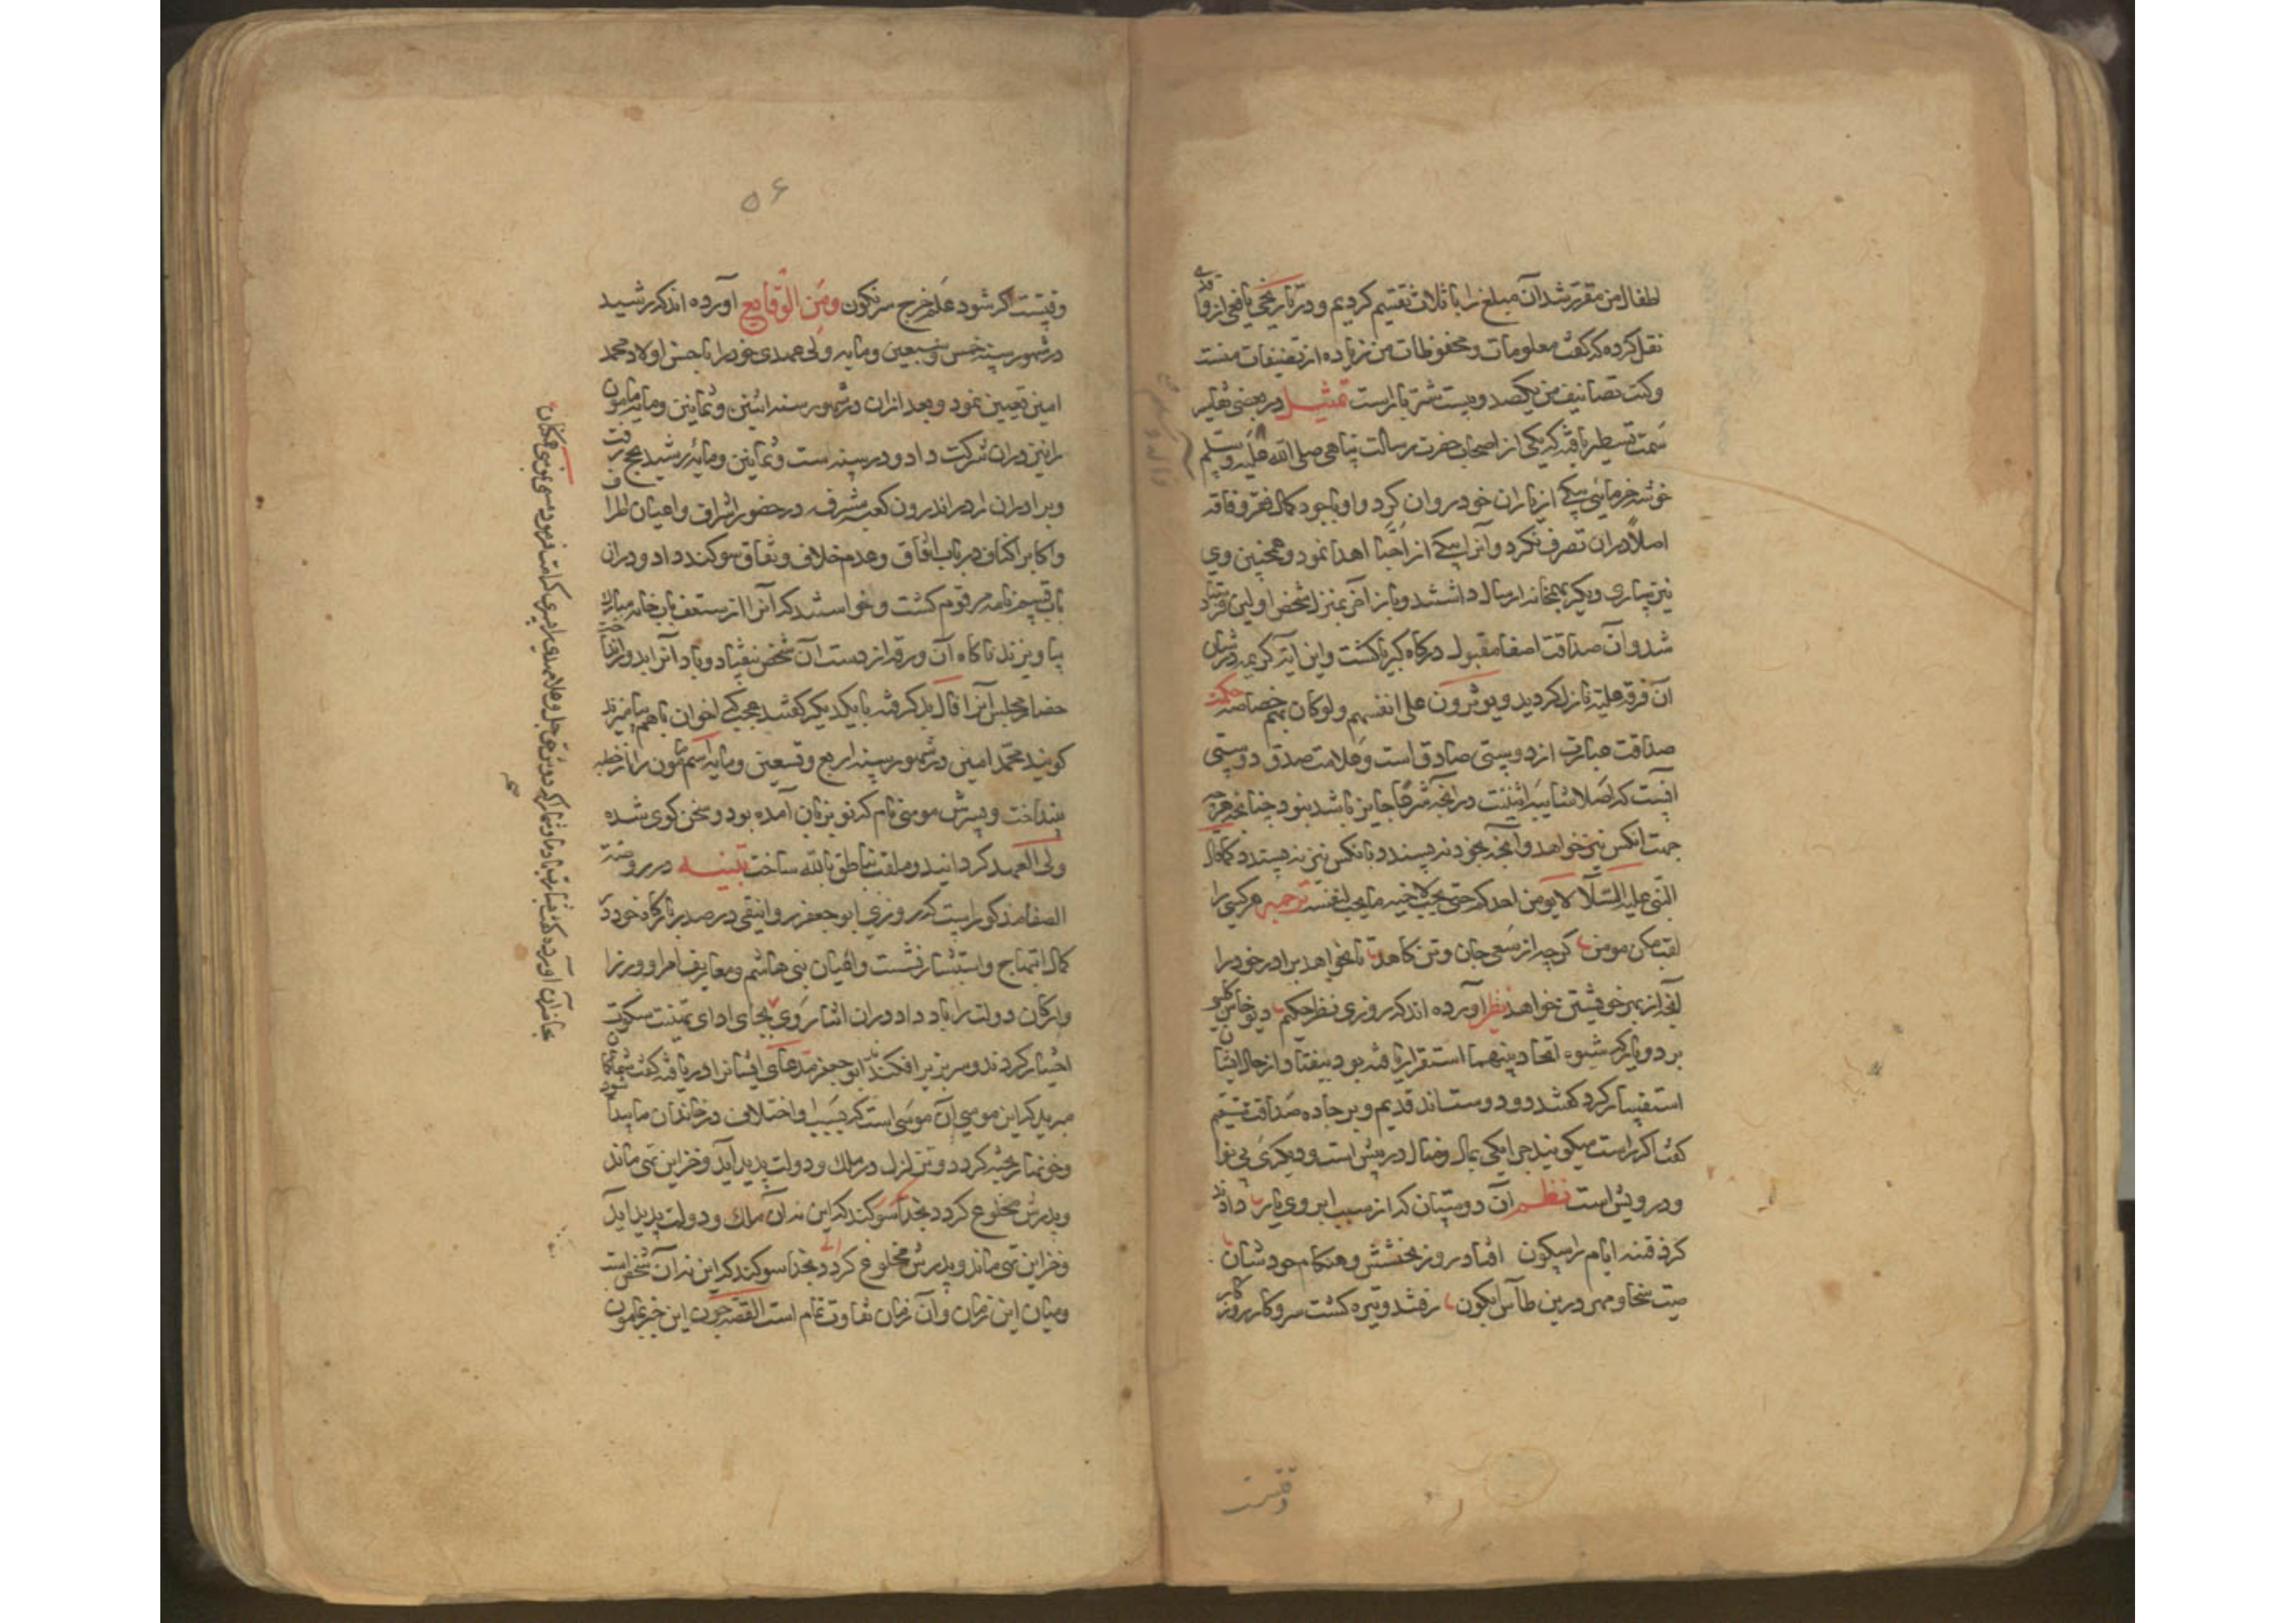 لطفال من مقرر شد آن مبلغ را باثلاث تقسیم کردیم و در تاریخی یافعی از واقدی
نقل کرده که گفت معلومات و محفوظات من زیاده از تصنیفات منست
و کتب تصانیف من یکصد و بیست شتر بارست تمثیل در بعضی تفاسیر
سمت تسطیر یافته که یکی از اصحاب حضرت رسالت پناهی صلی الله علیه وسلم
خوشه خرمائی بیکی از یاران خود روان کرد و او باوجود کمال فقر و فاقه
اصلا در آن تصرف نکرد و آنرا بیکی از احبا اهدا نمود و همچنین وی
نیز بیاری دیگر بهمخانه ارسال داشتند و باز آخر بمنزل شخص اولین فرستاد
شد و آن صداقت اصفا مقبول درگاه کبریا گشت و این آیة کریمه در شان
آن فرقه علیه نازل گردید ویوثرون علی انفسهم ولوکان بهم خصاصة حکمت
صداقت عبارت از دوستی صادق است و علامت صدق دوستی
آنست که اصلا شایبه اثنینت در آنچه شرعا جایز باشد نبود چنانچه هرچه
جهت انکس نیز خواهد و آنچه بخود نه پسندد بانکس نیز نه پسندد کما قال
النبی علیه السلام لا یومن احدکم حتی یحب لاخیه ما یحب لنفسه ترجمه هر کسی را
لقب مکن مومن گرچه از سعی جان و تن کاهد تا نخواهد برادر خود را
آنچه از بهر خویشتن خواهد نظر آورده اند که روزی نظر حکیم دیوخانس کلبی
بر دو یار که شیوه اتحاد بینهما استقرار یافته بود بیفتاد و از حال ایشان
استفسار کرد گفتند دو دوستاند قدیم و بر جاده صداقت مستقیم
گفت اگر راست میگویند چرا یکی بمال و منال در پیش است و دیگری بی نوا
و درویش است نظم آن دوستان که از سبب ابروی یار داد
کرد فتنه ایام را سکون افتاد روز بخشش و هنگام جود شان
صیت سخا و مهر درین طاس ابکون رفتند و تیره گشت سر و کار روزگار
وقتیست
۵۶
وقتیست اگر شود علم خرج سرنگون ومن الوقایع آورده اند که رشید
در شهور سنه خمس و سبعین و مایه ولی عهدی خود را باحسن اولاد محمد
امین تعیین نمود و بعد از آن در شهور سنه اثنین و ثمانین و مایه مامون
را نیز در آن شرکت داد و در سنه ست و ثمانین و مایه رشید بحج رفت
و برادران را در اندرون کعبه مشرفه در حضور اشراف و اعیان اطراف
و اکابر اکناف در باب اتفاق و عدم خلاف و نفاق سوگند داد و در آن
باب قسم نامه مرقوم گشت و خواستند که آنرا از سقف باب خانه مبارک
بیاویزند ناگاه آن ورقه از دست آن شخص بیفتاد و باد آنرا
حضار مجلس آنرا فال بد گرفته با یکدیگر گفتند عجب کی اخوان باهم بیامیزند
گویند محمد امین در شهور سنه اربع و تسعین و مایه اسم مامون را از خطبه
بینداخت و پسرش موسی نام که نو بزبان آمده بود و سخن گوی شده
ولی العهد گردانید و ملقب بناطق بالله ساخت تنبیه در روضة
الصفا مذکور است که روزی ابو جعفر دوانیقی در صدر بارگاه خود در
کمال ابتهاج و استبشار نشست و اعیان بنی هاشم و معارف امرا و وزرا
و ارکان دولت را بار داد در آن اثنا وی بجای ادای تهنیت سکوت
اختیار کردند و سر بزیر افکندند ابو جعفر مدعای ایشانرا دریافته گفت شما گمان
میبرید که این موسی آن موسی است که بسبب او اختلاف در خاندان ما پیدا شود
و خونها ریخته گردد و تزلزل در ملک و دولت پدید آید و خزاین تهی ماند
و پدرش مخلوع گردد بخدا سوگند که این نه آن ملک و دولت پدید آید
و خزاین تهی ماند و پدرش مخلوع گردد بخدا سوگند که این نه آن شخص است
و میان این زمان و آن زمان تفاوت تمام است القصه چون این خبر بمامون